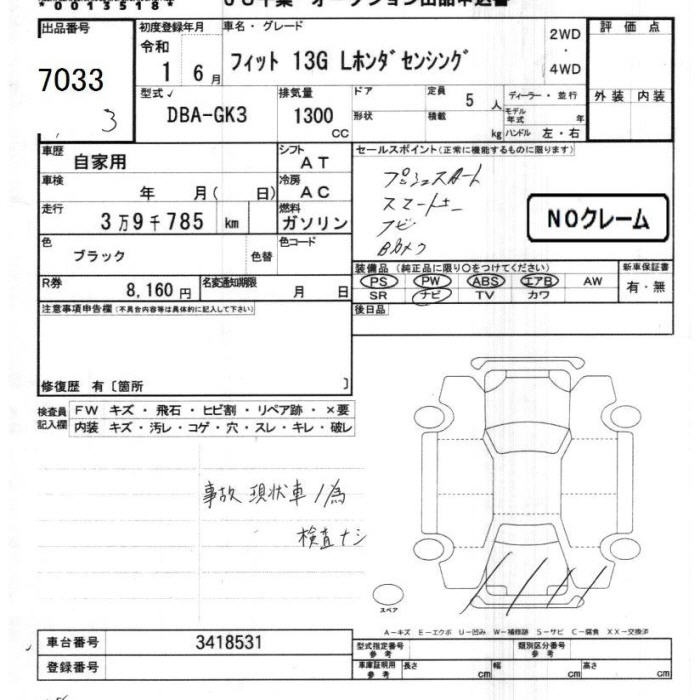 *00135184*
オークション出品申込書
出品番号
7033
3
初度登録年月
令和
1 6月
車名・グレード
フィット 13G Lホンダセンシング
2WD
・
4WD
評価点
外装 内装
型式
DBA-GK3
排気量
1300
CC
ドア
形状
定員 5 人
積載 kg
ディーラー・並行
モデル年式 年
ハンドル 左・右
車歴 自家用
シフト AT
セールスポイント(正常に機能するものに限ります)
車検 年 月( 日)
冷房 AC
プッシュスタート
スマートキー
ナビ
Bカメラ
走行 3万9千785 km
燃料 ガソリン
NOクレーム
色 ブラック 色替
色コード
装備品 (純正品に限り○をつけてください)
PS PW ABS エアB AW
SR ナビ TV カワ
新車保証書
有・無
R券 8,160円
名変通知期限 月 日
後日品
注意事項申告欄(不具合内容等は具体的に記入して下さい)
修復歴 有〔箇所 〕
検査員記入欄
FW キズ・飛石・ヒビ割・リペア跡・×要
内装 キズ・汚レ・コゲ・穴・スレ・キレ・破レ
事故 現状車ノ為
検査ナシ
スペア
A-キズ E-エクボ U-凹み W-補修跡 S-サビ C-腐食 XX-交換済
車台番号 3418531
登録番号
型式指定番号 参考
類別区分番号 参考
車庫証明用 参考 長さ cm 幅 cm 高さ cm